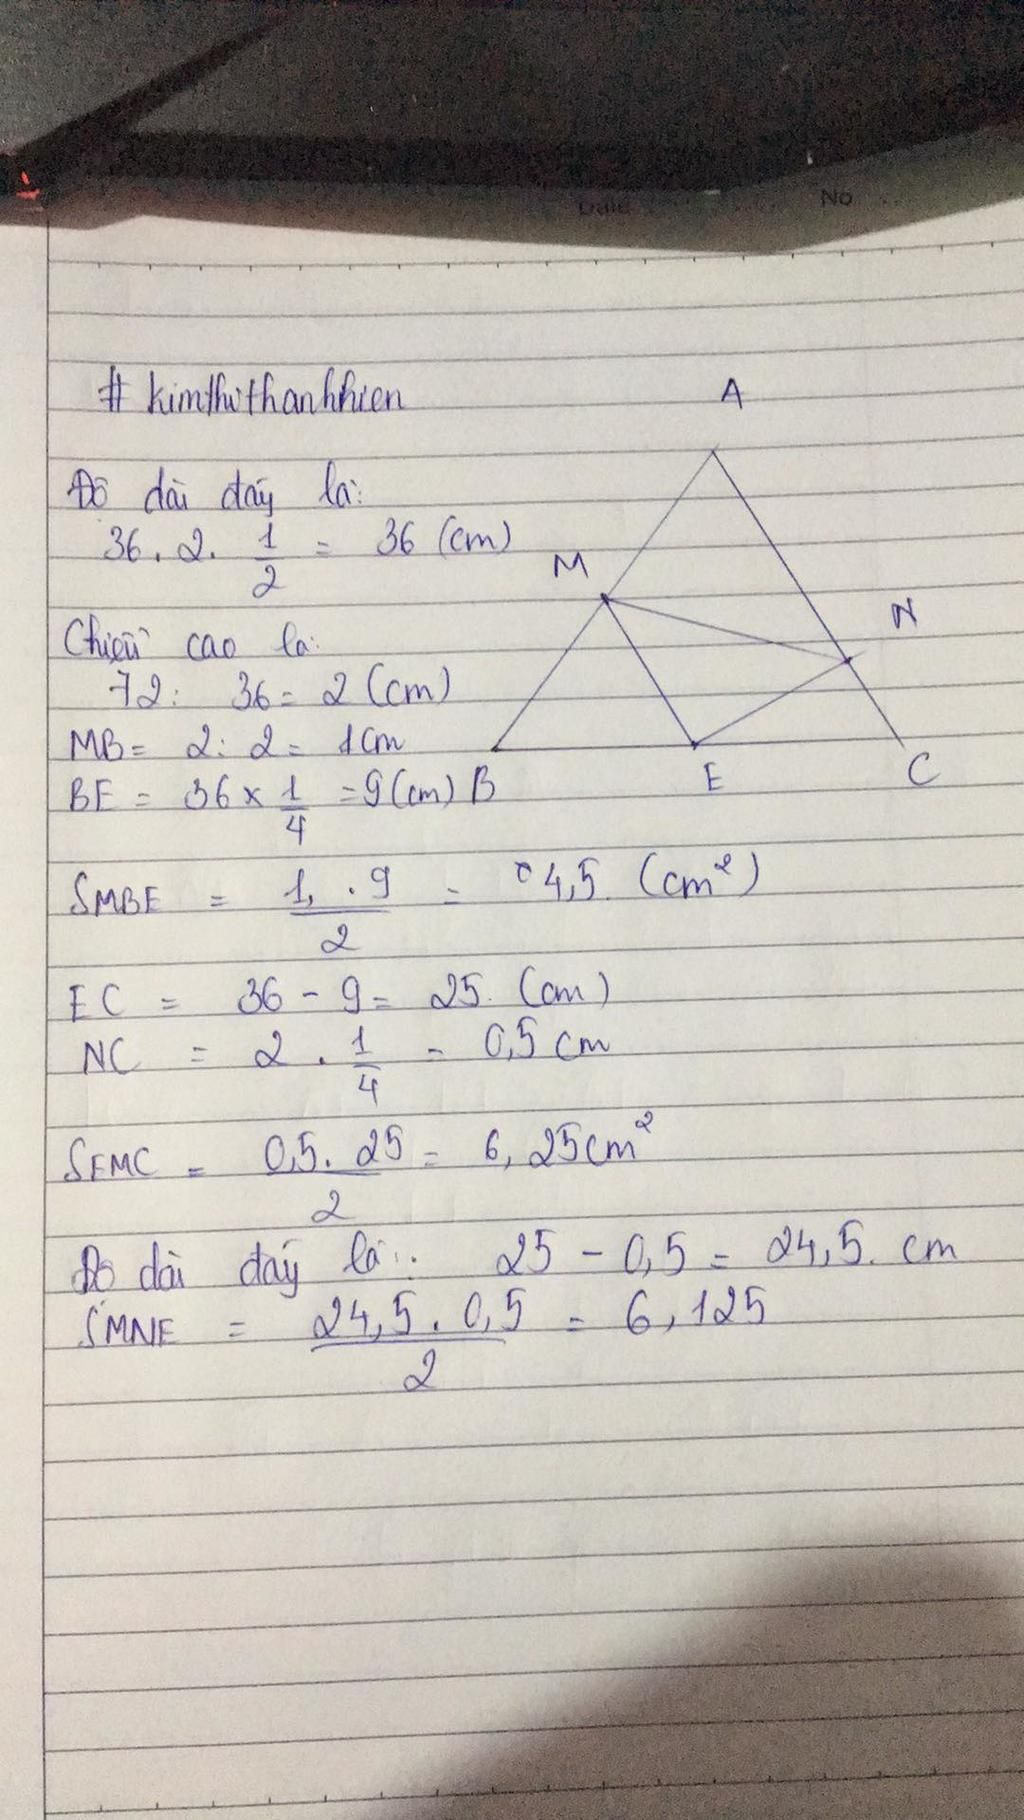 Date
No
# kimthithanhhien
A
Độ dài đáy là:
36 . 2 . 1/2 = 36 (cm)
M
N
Chiều cao là:
72 : 36 = 2 (cm)
MB = 2 : 2 = 1cm
BE = 36 × 1/4 = 9 (cm)
B
E
C
SMBE = 1, . 9 / 2 = 4,5 (cm²)
EC = 36 - 9 = 25. (cm)
NC = 2 . 1/4 = 0,5 cm
SEMC = 0,5 . 25 / 2 = 6,25cm²
Độ dài đáy là: 25 - 0,5 = 24,5. cm
SMNE = 24,5 . 0,5 / 2 = 6,125